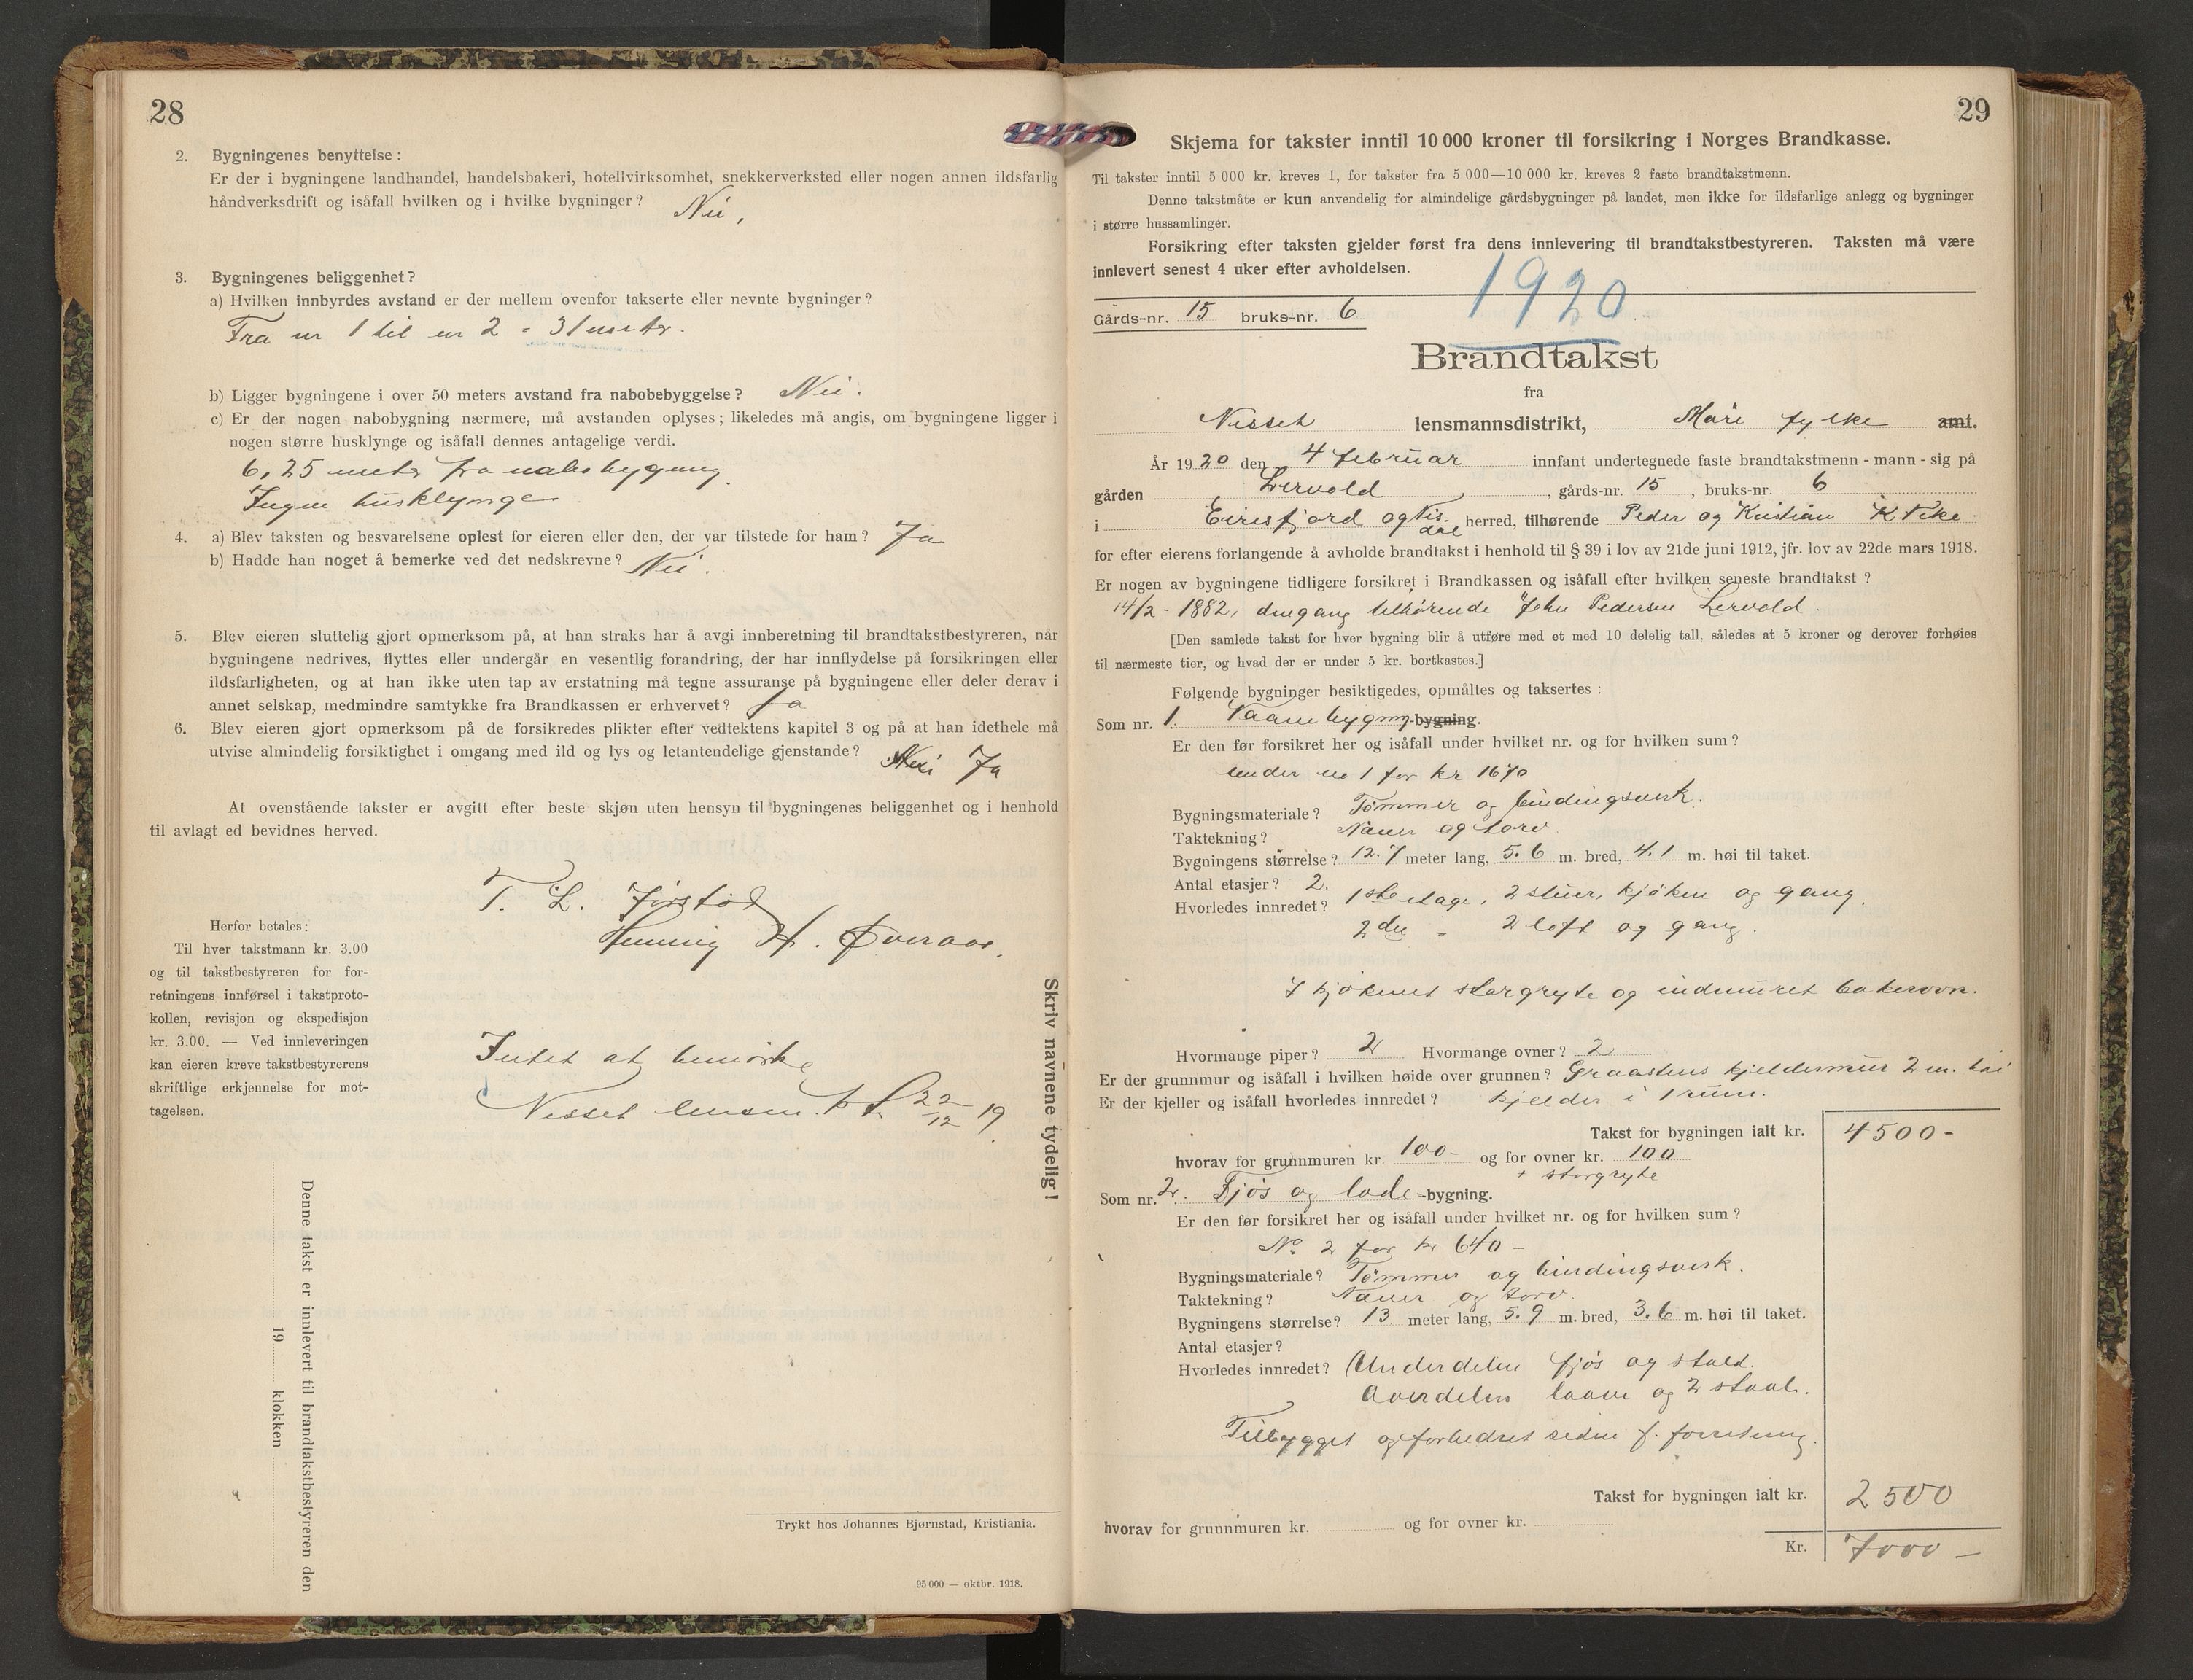 28
2. Bygningenes benyttelse:
Er der i bygningene landhandel, handelsbakeri, hotellvirksomhet, snekkerverksted eller nogen annen ildsfarlig
håndverksdrift og isåfall hvilken og i hvilke bygninger? Nei,
3. Bygningenes beliggenhet?
a) Hvilken innbyrdes avstand er der mellem ovenfor takserte eller nevnte bygninger?
Fra nr 1 til nr 2 = 31 meter.
b) Ligger bygningene i over 50 meters avstand fra nabobebyggelse? Nei.
c) Er der nogen nabobygning nærmere, må avstanden oplyses; likeledes må angis, om bygningene ligger i
nogen større husklynge og isåfall dennes antagelige verdi.
6,25 meter fra nabobygning.
Ingen husklynge
4. a) Blev taksten og besvarelsene oplest for eieren eller den, der var tilstede for ham? Ja
b) Hadde han noget å bemerke ved det nedskrevne? Nei.
5. Blev eieren sluttelig gjort opmerksom på, at han straks har å avgi innberetning til brandtakstbestyreren, når
bygningene nedrives, flyttes eller undergår en vesentlig forandring, der har innflydelse på forsikringen eller
ildsfarligheten, og at han ikke uten tap av erstatning må tegne assuranse på bygningene eller deler derav i
annet selskap, medmindre samtykke fra Brandkassen er erhvervet? Ja
6. Blev eieren gjort opmerksom på de forsikredes plikter efter vedtektens kapitel 3 og på at han idethele må
utvise almindelig forsiktighet i omgang med ild og lys og letantendelige gjenstande? Nei Ja
At ovenstående takster er avgitt efter beste skjøn uten hensyn til bygningenes beliggenhet og i henhold
til avlagt ed bevidnes herved.
T. L.
Henning H. Øveraas.
Herfor betales:
Til hver takstmann kr. 3.00
og til takstbestyreren for for-
retningens innførsel i takstproto-
kollen, revisjon og ekspedisjon
kr. 3.00. — Ved innleveringen
kan eieren kreve takstbestyrerens
skriftlige erkjennelse for mot-
tagelsen.
Intet at bemerke
Nesset 22/12 19.
Skriv navnene tydelig!
Denne takst er innlevert til brandtakstbestyreren den
19 klokken
Trykt hos Johannes Bjørnstad, Kristiania.
95 000 — oktbr. 1918.
29
Skjema for takster inntil 10 000 kroner til forsikring i Norges Brandkasse.
Til takster inntil 5 000 kr. kreves 1, for takster fra 5 000—10 000 kr. kreves 2 faste brandtakstmenn.
Denne takstmåte er kun anvendelig for almindelige gårdsbygninger på landet, men ikke for ildsfarlige anlegg og bygninger
i større hussamlinger.
Forsikring efter taksten gjelder først fra dens innlevering til brandtakstbestyreren. Taksten må være
innlevert senest 4 uker efter avholdelsen.
1920
Gårds-nr. 15 bruks-nr. 6
Brandtakst
fra
Nesset lensmannsdistrikt, Møre fylke amt.
År 1920 den 4 februar innfant undertegnede faste brandtakstmenn - mann - sig på
gården Lervold, gårds-nr. 15, bruks-nr. 6
i Eiresfjord og Vis-dal herred, tilhørende Peder og Kristian K
for efter eierens forlangende å avholde brandtakst i henhold til § 39 i lov av 21de juni 1912, jfr. lov av 22de mars 1918.
Er nogen av bygningene tidligere forsikret i Brandkassen og isåfall efter hvilken seneste brandtakst?
14/2 - 1882, dengang tilhørende John Pedersen Lervold.
[Den samlede takst for hver bygning blir å utføre med et med 10 delelig tall, således at 5 kroner og derover forhøies
til nærmeste tier, og hvad der er under 5 kr. bortkastes.]
Følgende bygninger besiktigedes, opmåltes og taksertes:
Som nr. 1. Vaanebygning-bygning.
Er den før forsikret her og isåfall under hvilket nr. og for hvilken sum?
Under no 1 for kr 1670
Bygningsmateriale? Tømmer og bindingsverk.
Taktekning? Næver og torv.
Bygningens størrelse? 12.7 meter lang, 5.6 m. bred, 4.1 m. høi til taket.
Antal etasjer? 2.
Hvorledes innredet? 1ste etage, 2 stuer, kjøken og gang.
2den " 2 loft og gang.
I kjøkenet storgryte og indmuret bakerovn.
Hvormange piper? 2 Hvormange ovner? 2
Er der grunnmur og isåfall i hvilken høide over grunnen? Graastens kjeldermur 2 m. høi
Er der kjeller og isåfall hvorledes innredet? kjelder i 1 rum.
Takst for bygningen ialt kr. 4500-
hvorav for grunnmuren kr. 100- og for ovner kr. 100
+ storgryte
Som nr. 2. Fjøs og lade-bygning.
Er den før forsikret her og isåfall under hvilket nr. og for hvilken sum?
No. 2 for kr 640 -
Bygningsmateriale? Tømmer og bindingsverk.
Taktekning? Næver og torv.
Bygningens størrelse? 13 meter lang, 5.9 m. bred, 3.6 m. høi til taket.
Antal etasjer?
Hvorledes innredet? Underdelen fjøs og stald.
Overdelen laave og 2 staal.
Tilbygget og forbedret siden f. forretning.
Takst for bygningen ialt kr. 2500
hvorav for grunnmuren kr. og for ovner kr.
Kr. 7000 -